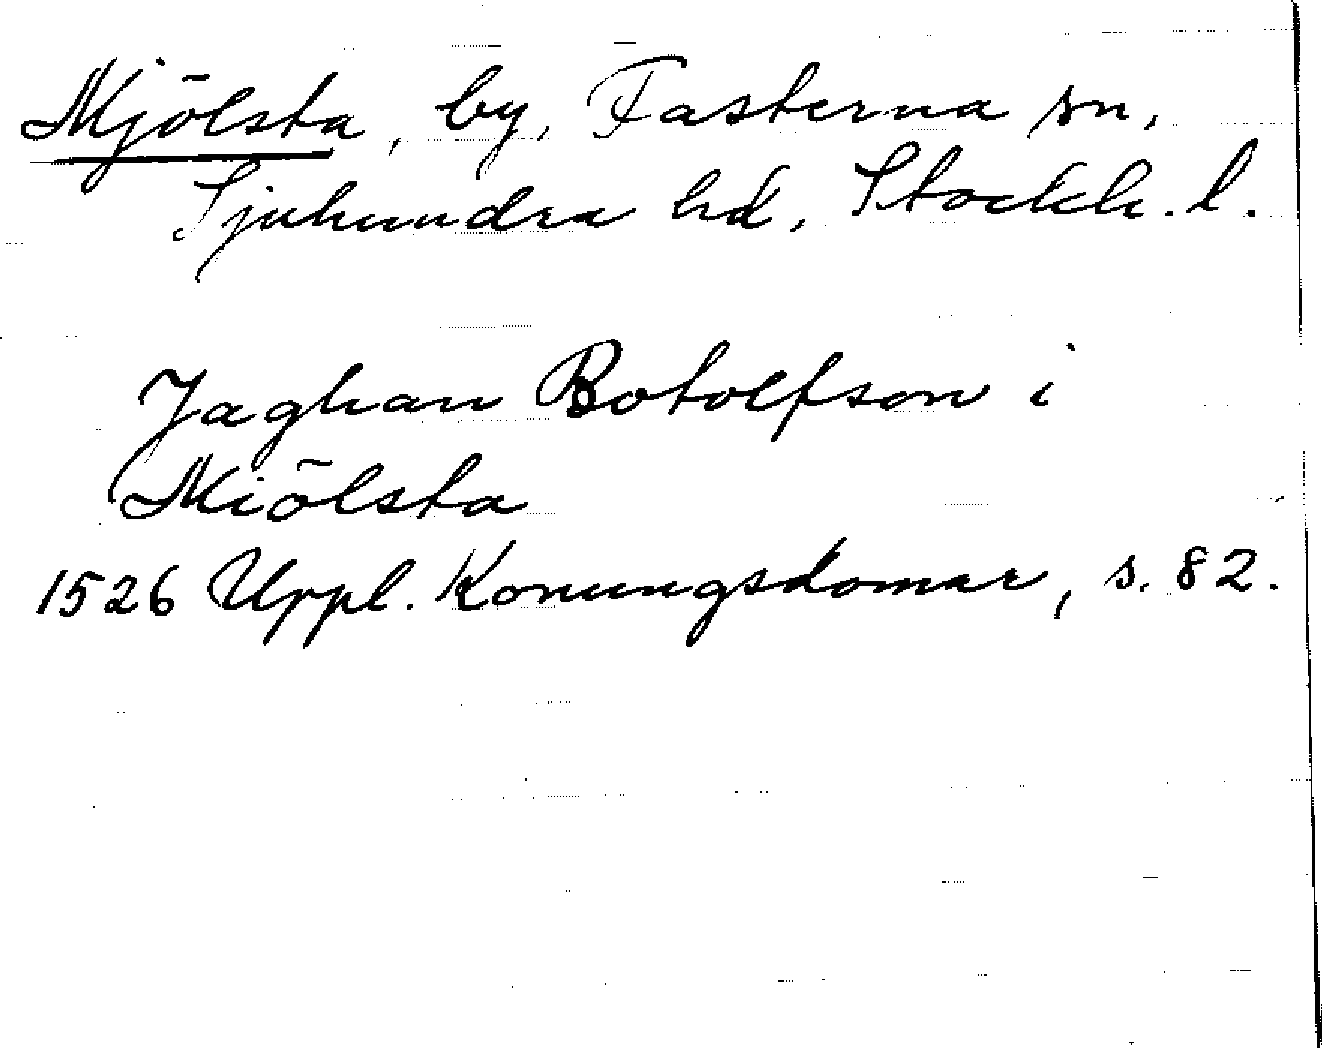 Mjölsta, by, Fasterna sn,
Sjuhundra hd, Stockh. l.
Jaghan Botolfson i
Miölsta
1526 Uppl. Konungsdomar, s. 82.